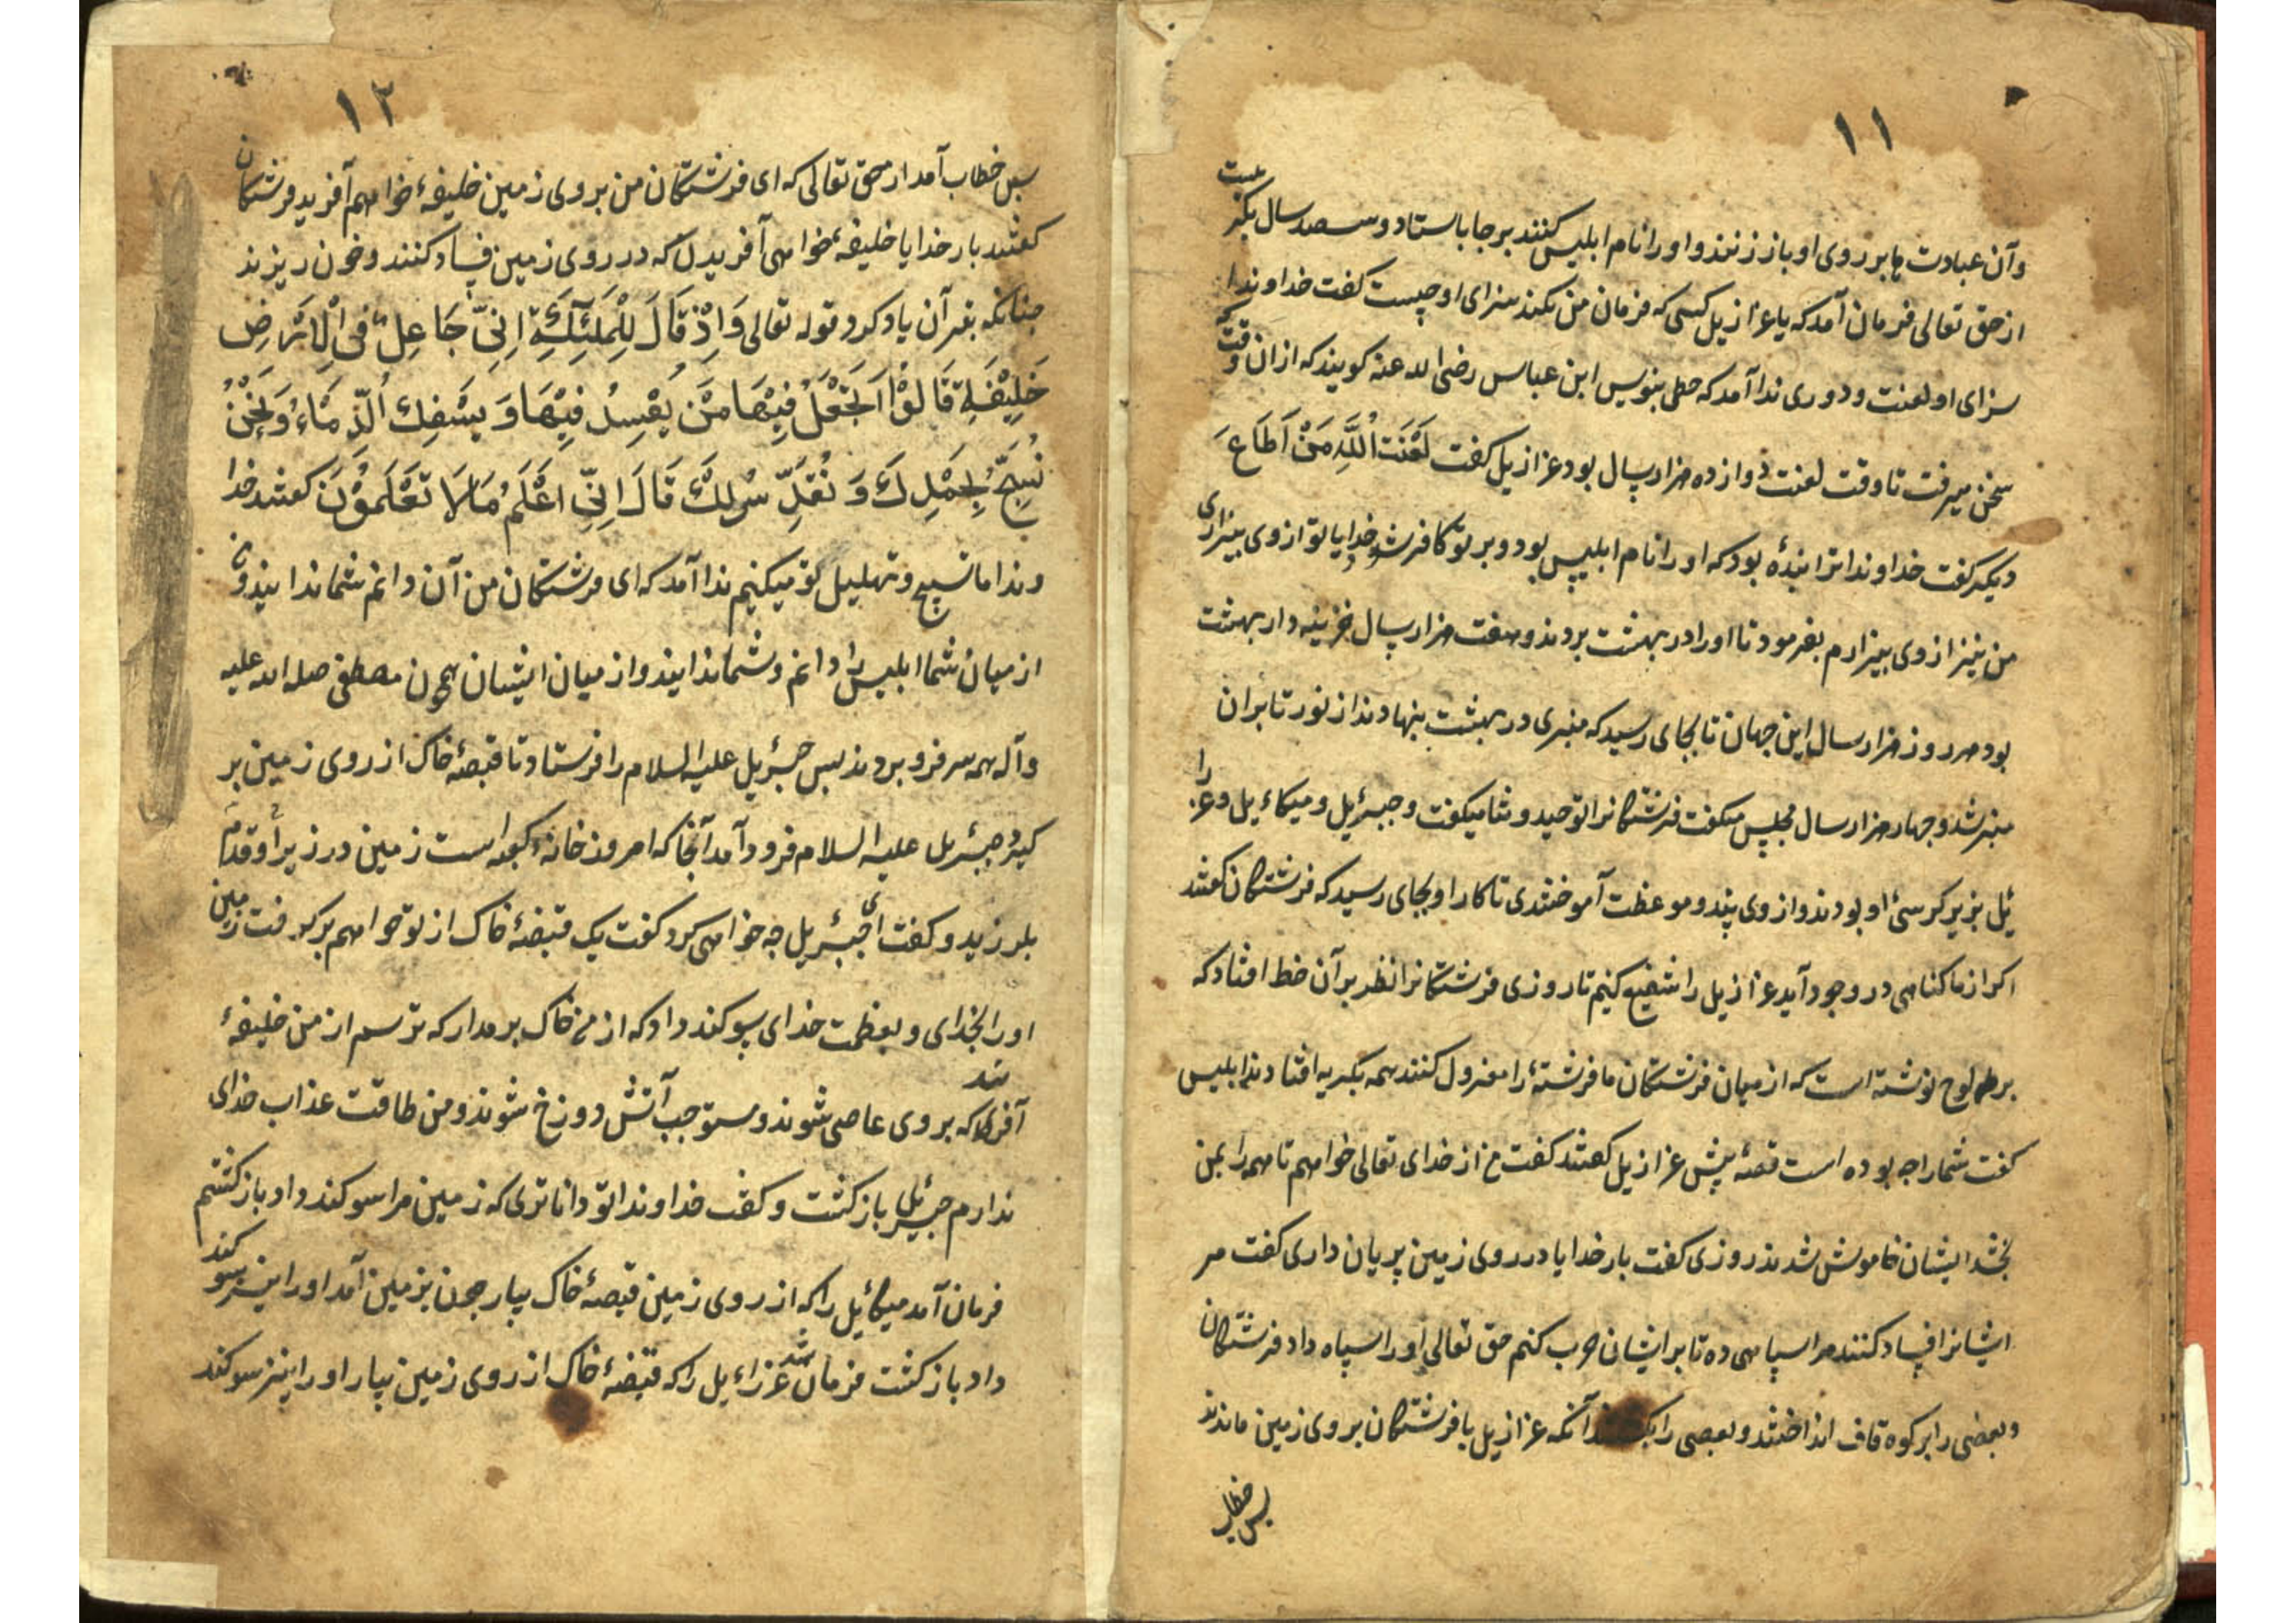 ۱۱
وآن عبادت ها بر روی او باز زنند و او را نام ابلیس کنند برجا باستاد و سصد سال بکریست
از حق تعالی فرمان آمد که یا عزازیل کسی که فرمان من نکند سزای او چیست کفت خداوندا
سزای او لعنت و دوری ندا آمد که خطی بنویس ابن عباس رضی الله عنه کویند که از ان وقت که
سخن میرفت تا وقت لعنت دوازده هزار سال بود عزازیل کفت لَعْنَتَ اللّٰهِ مَنْ اَطَاعَ
دیکر کفت خداوندا ترا بندهٔ بود که او را نام ابلیس بود و بر تو کافر شود خدایا تو از وی بیزاری
من نیز از وی بیزارم بفرمود تا او را در بهشت بردند و هفت هزار سال خزینه دار بهشت
بود هر روز هزار سال این جهان تا بجای رسید که منبری در بهشت بنهادند از نور تا بران
منبر شد و چهار هزار سال مجلس میکفت فرشتکانرا توحید و ثنا میکفت و جبرئیل و میکائیل و عزرا
ئیل بزیر کرسئ او بودند و از وی پند و موعظت آموختندی تا کار او بجای رسید که فرشتکان کفتند
اکر از ما کناهی در وجود آید عزازیل را شفیع کنیم تا روزی فرشتکانرا نظر بر آن خط افتاد که
بر لوح نوشته است که از میان فرشتکان ما فرشتهٔ را معزول کنند همه بکریه افتادند ابلیس
کفت شما را چه بوده است قصهٔ پیش عزازیل کفتند کفت من از خدای تعالی خواهم تا همه را بمن
بخشد ایشان خاموش شدند روزی کفت بار خدایا در روی زمین پریان داری کفت مر
ایشانرا فساد کنند مرا سپاهی ده تا بر ایشان حرب کنم حق تعالی او را سپاه داد فرشتکان
و بعضی را بر کوه قاف انداختند و بعضی را آنکه عزازیل با فرشتکان بر روی زمین ماندند
پس خطاب
۱۲
پس خطاب آمد از حق تعالی که ای فرشتکان من بر روی زمین خلیفهٔ خواهم آفرید فرشتکان
کفتند بار خدایا خلیفهٔ خواهی آفریدن که در روی زمین فساد کنند و خون ریزند
چنانکه بقرآن یاد کرد قوله تعالی وَاِذْ قَالَ لِلْمَلٰٓئِكَةِ اِنِّیْ جَاعِلٌ فِی الْاَرْضِ
خَلِیْفَةً قَالُوْا اَتَجْعَلُ فِیْهَا مَنْ یُفْسِدُ فِیْهَا وَ یَسْفِكُ الدِّمَاءَ وَ نَحْنُ
نُسَبِّحُ بِحَمْدِكَ وَ نُقَدِّسُ لَكَ قَالَ اِنِّیْ اَعْلَمُ مَا لَا تَعْلَمُوْنَ کفتند خدا
وندا ما تسبیح و تهلیل تو میکنیم ندا آمد که ای فرشتکان من آن دانم شما ندانید و من
از میان شما ابلیس را دانم و شما ندانید و از میان ایشان همچون مصطفی صلی الله علیه
وآله همه سر فرو بردند پس جبرئیل علیه السلام را فرستاد تا قبضهٔ خاک از روی زمین بر
کیرد جبرئیل علیه السلام فرود آمد آنجا که امروز خانهٔ کعبه است زمین در زیر او قدم
بلرزید و کفت ای جبرئیل چه خواهی کرد کفت یک قبضهٔ خاک از تو خواهم بر کرفت زمین
او را بخدای و بعظمت خدای سوکند داد که از من خاک بر مدار که ترسم از من خلیفهٔ
آفریند که بر وی عاصی شوند و مستوجب آتش دوزخ شوند و من طاقت عذاب خدای
ندارم جبرئیل باز کشت و کفت خداوندا تو داناتری که زمین مرا سوکند داد باز کشتم
فرمان آمد میکائیل را که از روی زمین قبضهٔ خاک بیار چون بزمین آمد او را نیز سوکند
داد باز کشت فرمان شد عزرائیل را که قبضهٔ خاک از روی زمین بیار او را نیز سوکند